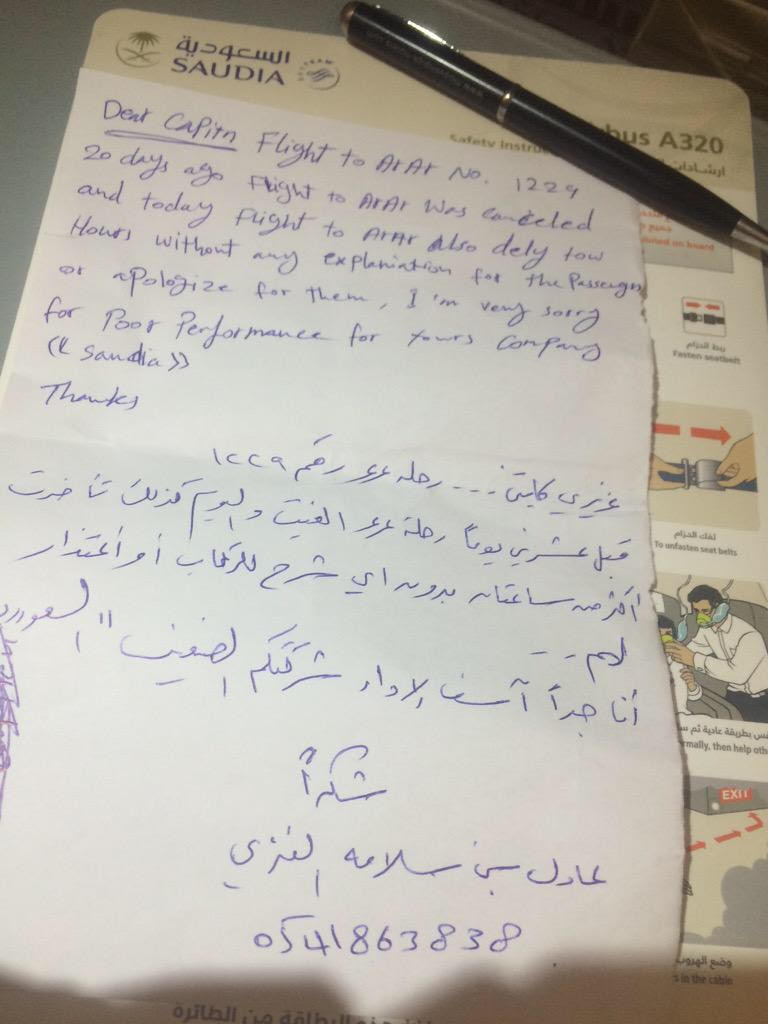 السعودية
SAUDIA
SKYTEAM
Airbus A320
Safety Instruc
ارشادات
Dear Capitn Flight to ArAr No. 1229
20 days ago Flight to ArAr was canceled
and today flight to ArAr also dely tow
Hours without any explaniation for the Passengers
or apologize for them, I'm very sorry
for Poor Performance for yours Company
(( Saudia ))
Thanks
عزيزي كابتن ... رحله عرعر رقم ١٢٢٩
قبل عشرين يوماً رحلة عرعر الغيت واليوم كذلك تأخرت
أكثر من ساعتان بدون اي شرح للركاب أو أعتذار
لهم ...
أنا جداً آسف لاداء شركتكم الضعيف " السعودية
شكراً
عادل بن سلامه العنزي
0541863838
on board
ربط الحزام
Fasten seatbelt
لفك الحزام
To unfasten seat belts
فس بطريقة عادية ثم
rmally, then help oth
EXIT
وضع الهروب
s in the cabin
هذه البطاقة من الطائرة